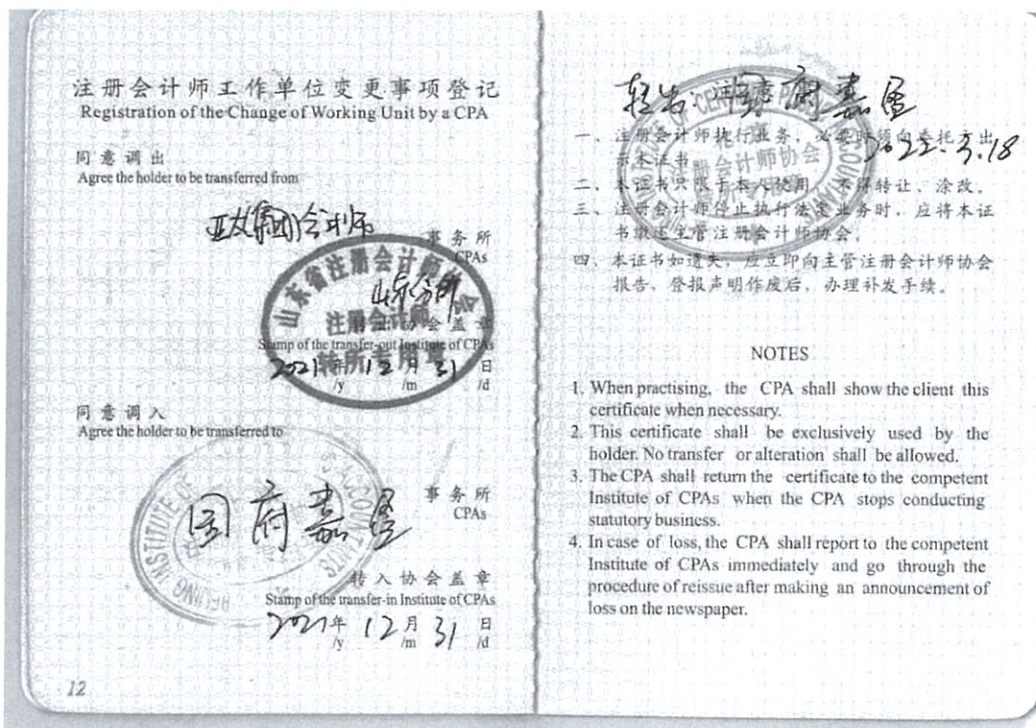 注册会计师工作单位变更事项登记
Registration of the Change of Working Unit by a CPA
同意调出
Agree the holder to be transferred from
集团会计师
事务所
CPAs
山东分所
山东省注册会计师协会
注册会计师
转所专用章
Stamp of the transfer-out Institute of CPAs
2021年 12月 31日
/y /m /d
同意调入
Agree the holder to be transferred to
国府嘉盈
事务所
CPAs
转入协会盖章
Stamp of the transfer-in Institute of CPAs
2021年 12月 31日
/y /m /d
12
国府嘉盈
2022.3.18
一、注册会计师执行业务,必要时须向委托方出
示本证书。
二、本证书只限于本人使用,不得转让、涂改。
三、注册会计师停止执行法定业务时,应将本证
书缴还主管注册会计师协会。
四、本证书如遗失,应立即向主管注册会计师协会
报告,登报声明作废后,办理补发手续。
NOTES
1. When practising, the CPA shall show the client this
certificate when necessary.
2. This certificate shall be exclusively used by the
holder. No transfer or alteration shall be allowed.
3. The CPA shall return the certificate to the competent
Institute of CPAs when the CPA stops conducting
statutory business.
4. In case of loss, the CPA shall report to the competent
Institute of CPAs immediately and go through the
procedure of reissue after making an announcement of
loss on the newspaper.